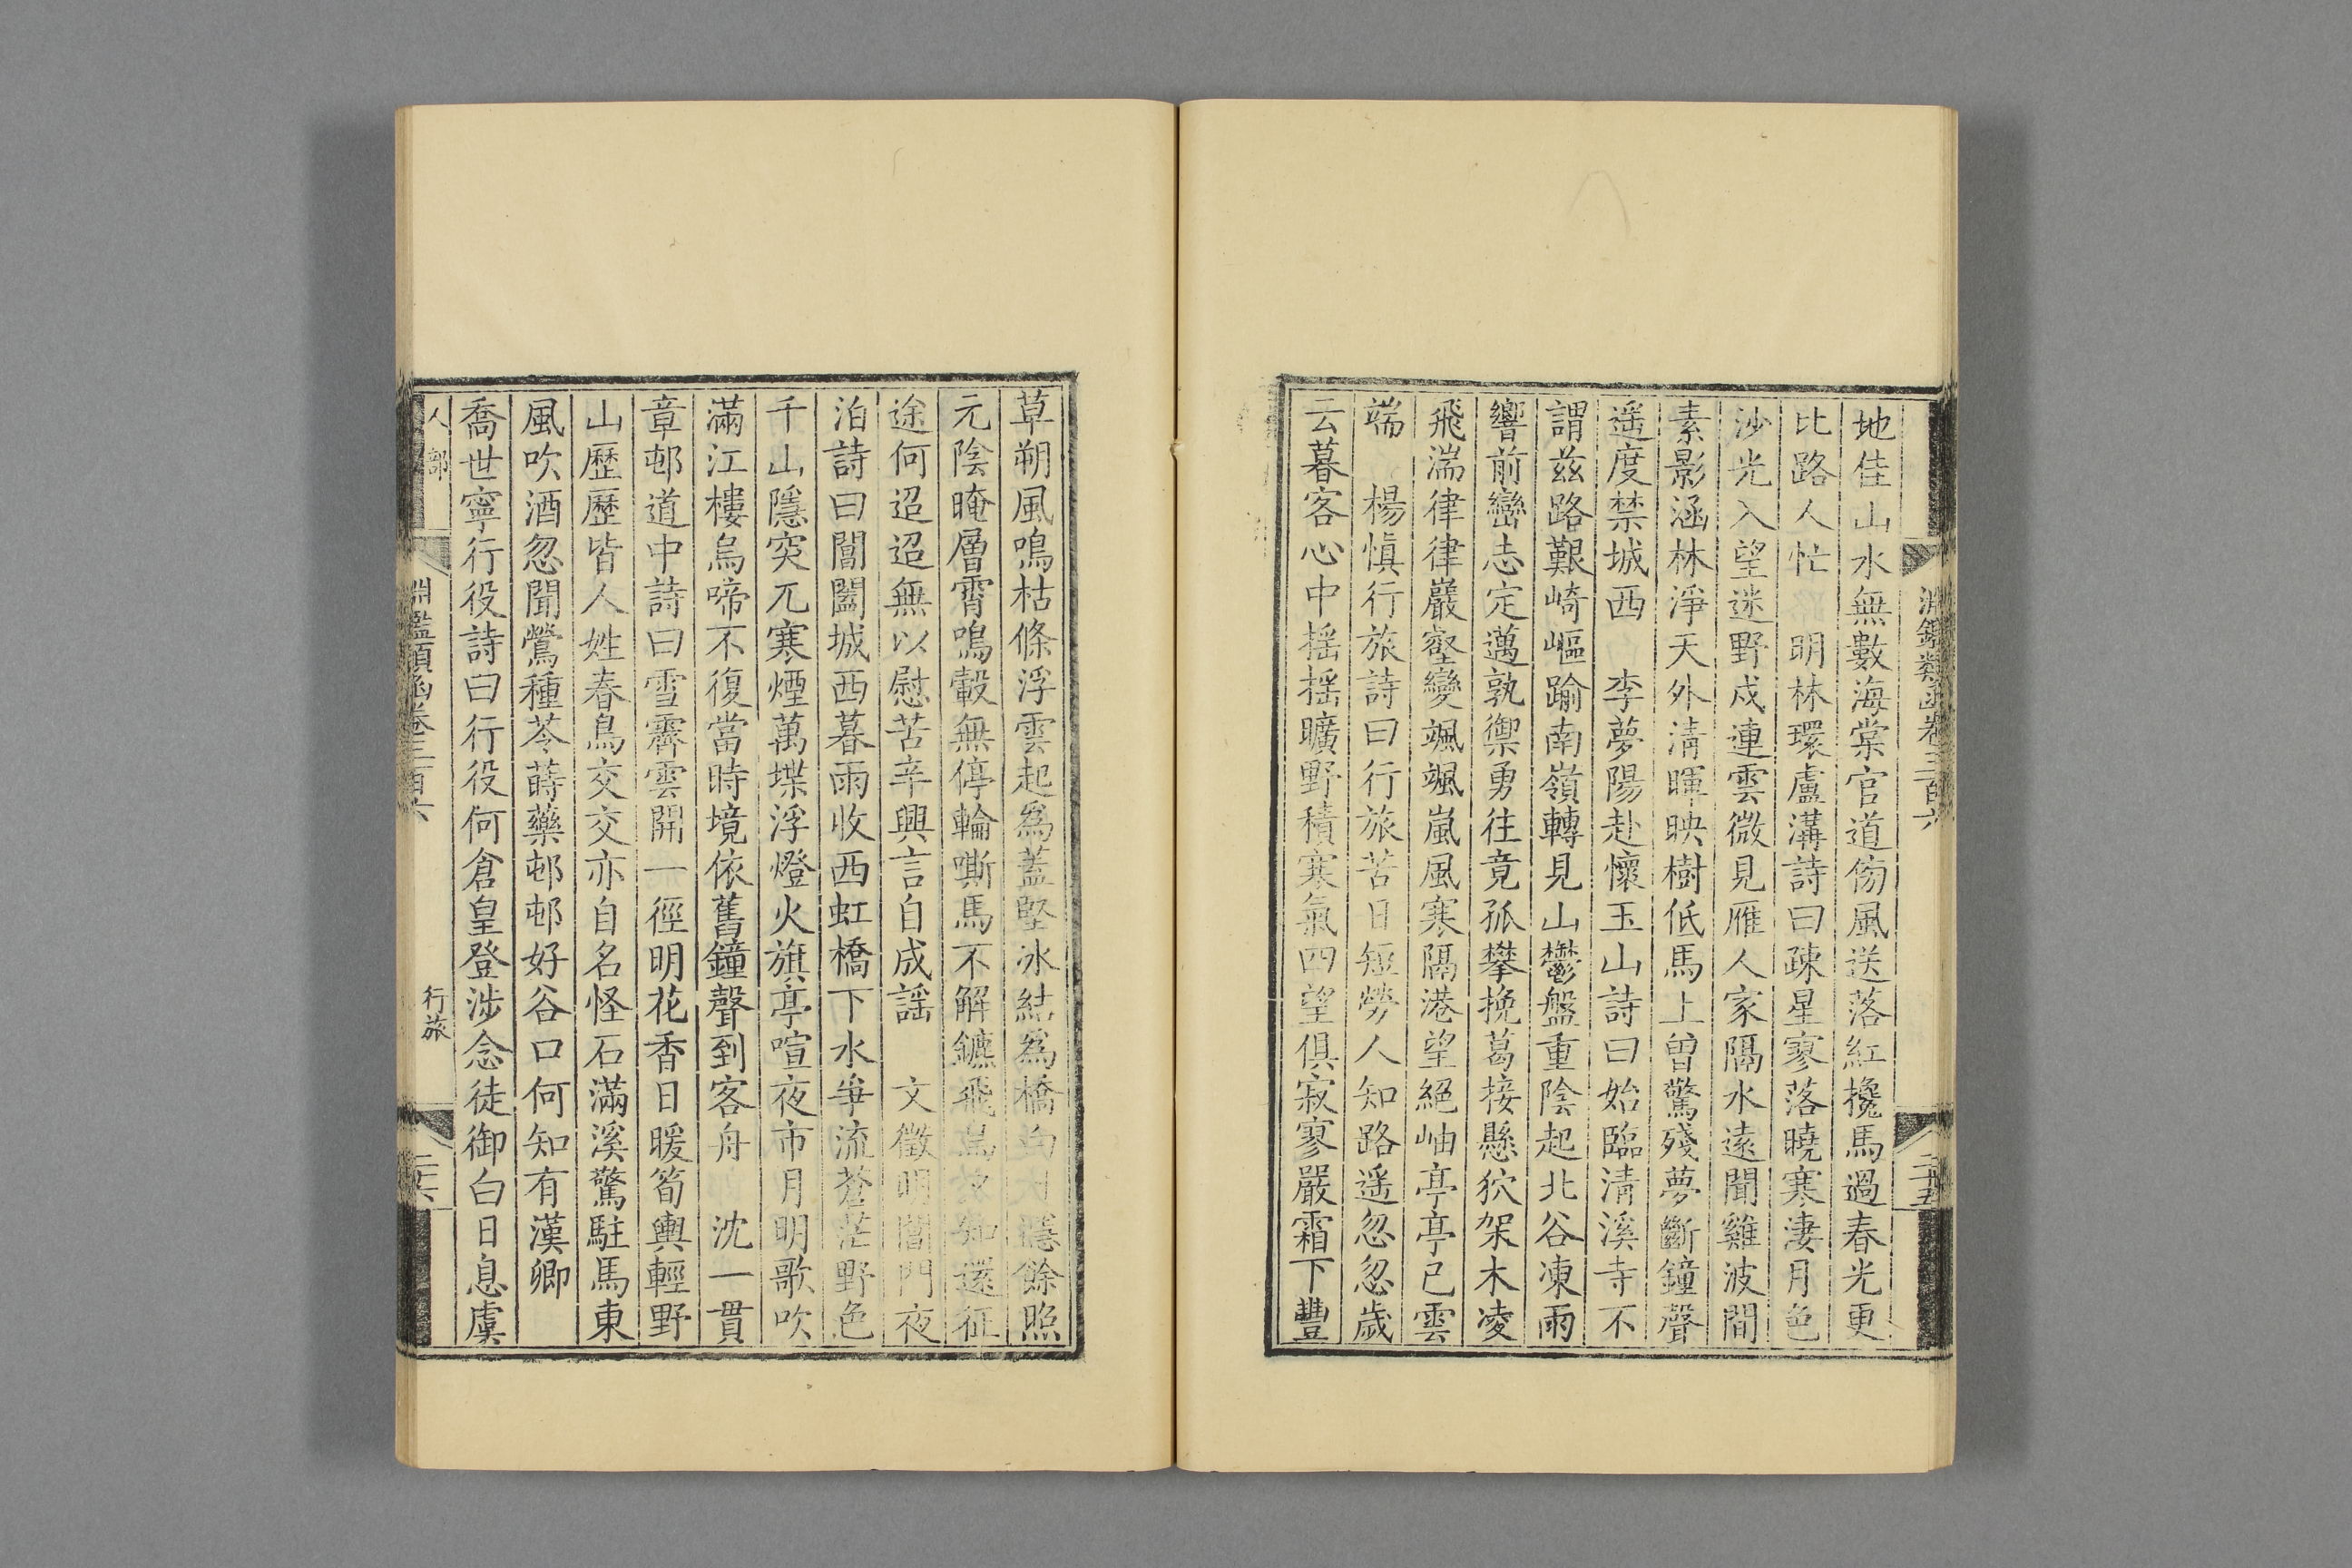 淵鑑類函卷三百六
二十五
地佳山水無數海棠官道傍風送落紅攙馬過春光更
比路人忙 明林環盧溝詩曰疎星寥落曉寒淒月色
沙光入望迷野戍連雲微見雁人家隔水遠聞雞波間
素影涵林淨天外清暉映樹低馬上曾驚殘夢斷鐘聲
遥度禁城西 李夢陽赴懷玉山詩曰始臨清溪寺不
謂茲路艱崎嶇踰南嶺轉見山鬱盤重陰起北谷凍雨
響前巒志定邁孰禦勇往竟孤攀挽葛接懸狖架木凌
飛湍律律巖壑變颯颯嵐風寒隔港望絕岫亭亭已雲
端 楊慎行旅詩曰行旅苦日短勞人知路遥忽忽歲
云暮客心中揺揺曠野積寒氣四望俱寂寥嚴霜下豐
草朔風鳴枯條浮雲起爲蓋堅冰結爲橋隱餘照
元陰晻層霄鳴轂無停輪嘶馬不解鑣飛知還征
途何迢迢無以慰苦辛興言自成謡 文徵明閶門夜
泊詩曰閶闔城西暮雨收西虹橋下水爭流蒼茫野色
千山隱突兀寒煙萬堞浮燈火旗亭喧夜市月明歌吹
滿江樓烏啼不復當時境依舊鐘聲到客舟 沈一貫
章邨道中詩曰雪霽雲開一徑明花香日暖筍輿輕野
山歷歷皆人姓春鳥交交亦自名怪石滿溪驚駐馬東
風吹酒忽聞鶯種苓蒔藥邨邨好谷口何知有漢卿
喬世寧行役詩曰行役何倉皇登涉念徒御白日息虞
人部
淵鑑類函卷三百六
行旅
二十六